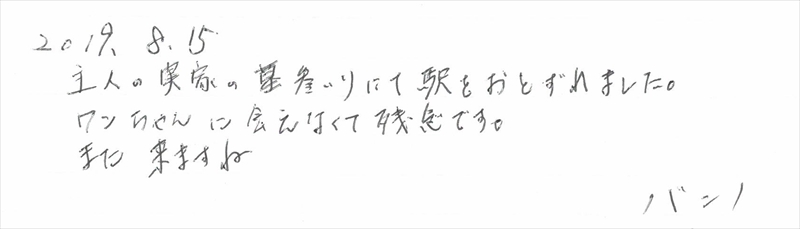 2019. 8. 15
主人の実家の墓参いりにて駅をおとずれました。
ワンちゃんに会えなくて残念です。
また来ますね
バンノ